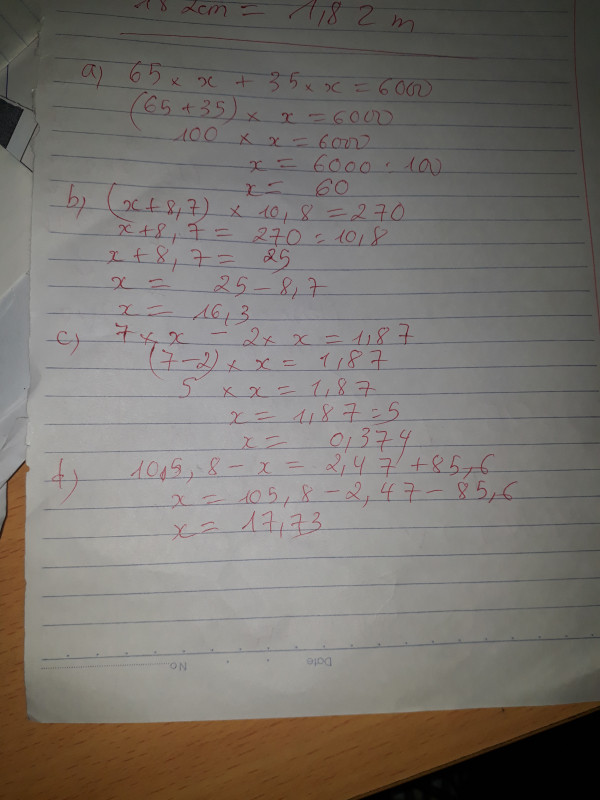 182cm = 1,82 m
a) 65 × x + 35 × x = 6000
(65 + 35) × x = 6000
100 × x = 6000
x = 6000 : 100
x = 60
b) (x + 8,7) × 10,8 = 270
x + 8,7 = 270 : 10,8
x + 8,7 = 25
x = 25 - 8,7
x = 16,3
c) 7 × x - 2 × x = 1,87
(7 - 2) × x = 1,87
5 × x = 1,87
x = 1,87 : 5
x = 0,374
d) 105,8 - x = 2,47 + 85,6
x = 105,8 - 2,47 - 85,6
x = 17,73
No. Date